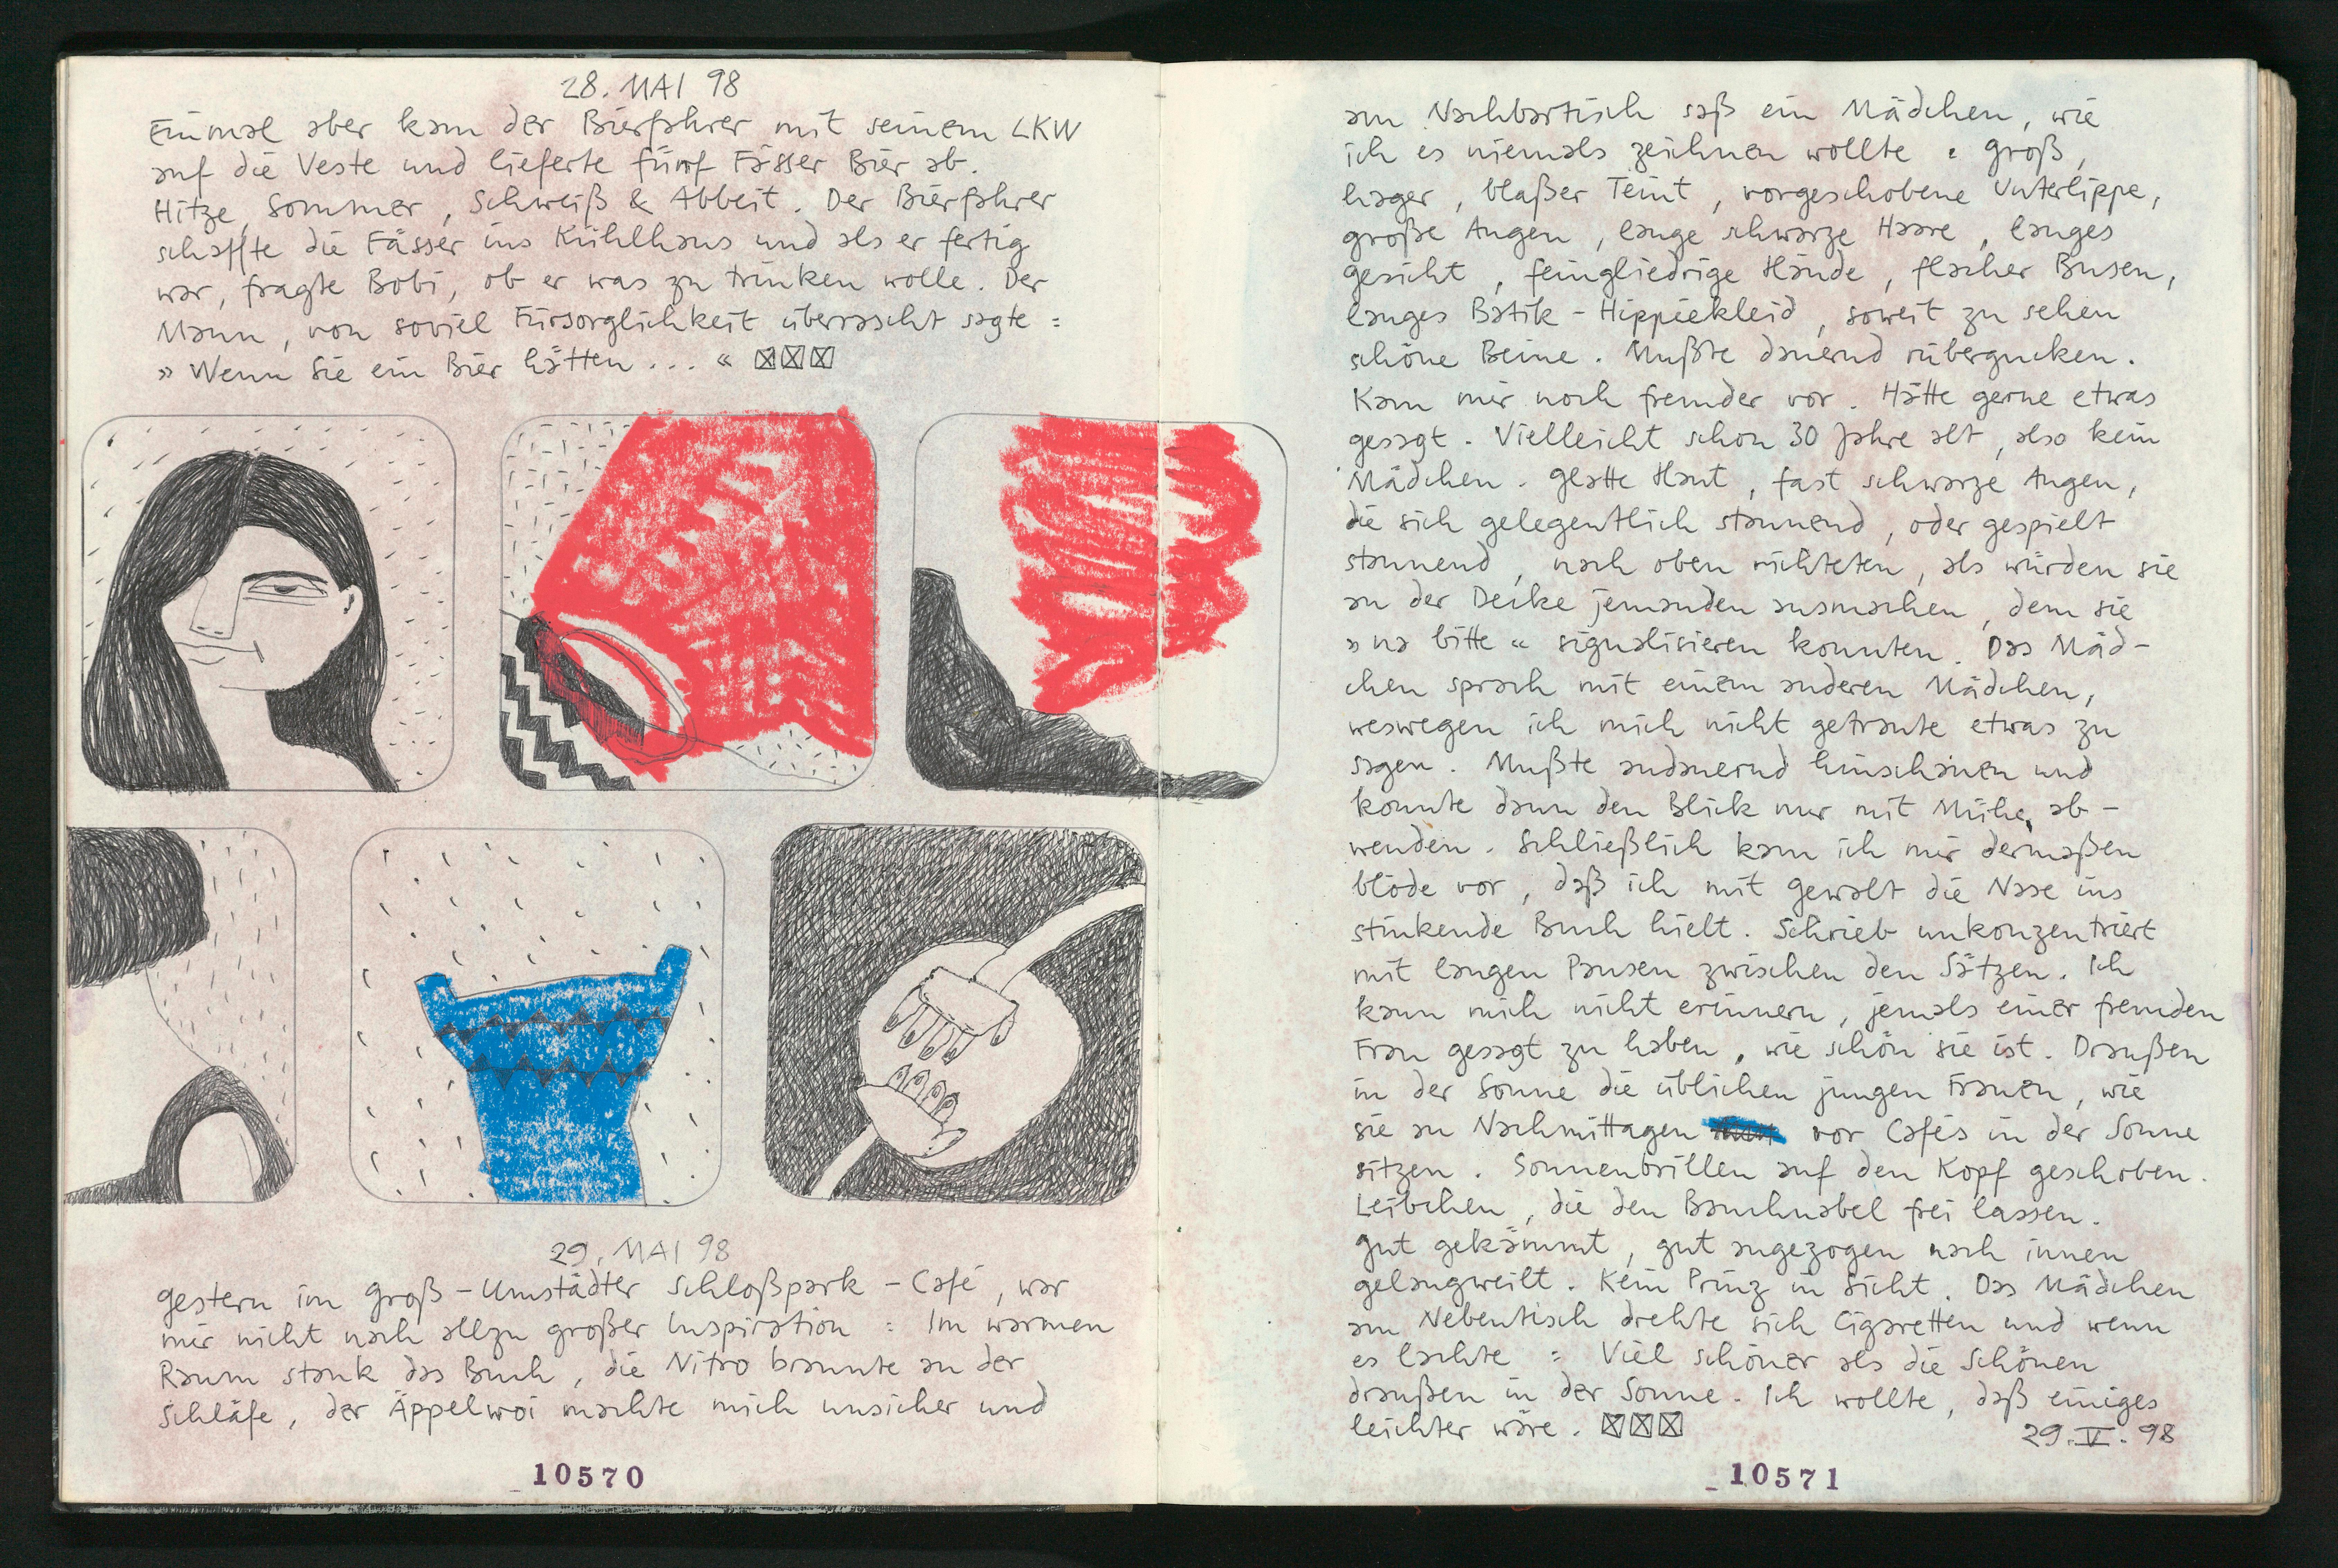 28. MAI 98
Einmal aber kam der Bierfahrer mit seinem LKW
auf die Veste und lieferte fünf Fässer Bier ab.
Hitze, Sommer, Schweiß & Abbeit. Der Bierfahrer
schaffte die Fässer ins Kühlhaus und als er fertig
war, fragte Bobi, ob er was zu trinken wolle. Der
Mann, von soviel Fürsorglichkeit überrascht sagte:
»Wenn Sie ein Bier hätten...« ☒☒☒
29. MAI 98
Gestern im Groß-Umstädter Schloßpark-Café, war
mir nicht nach allzu großer Inspiration: Im warmen
Raum stank das Buch, die Nitro brannte an der
Schläfe, der Äppelwoi machte mich unsicher und
10570
am Nachbartisch saß ein Mädchen, wie
ich es niemals zeichnen wollte: Groß,
hager, blaßer Teint, vorgeschobene Unterlippe,
große Augen, lange schwarze Haare, langes
Gesicht, feingliedrige Hände, flacher Busen,
langes Batik-Hippiekleid, soweit zu sehen
schöne Beine. Mußte dauernd rübergucken.
Kam mir noch fremder vor. Hätte gerne etwas
gesagt. Vielleicht schon 30 Jahre alt, also kein
Mädchen. Glatte Haut, fast schwarze Augen,
die sich gelegentlich staunend, oder gespielt
staunend, nach oben richteten, als würden sie
an der Decke jemanden ausmachen, dem sie
»na bitte« signalisieren konnten. Das Mäd-
chen sprach mit einem anderen Mädchen,
weswegen ich mich nicht getraute etwas zu
sagen. Mußte andauernd hinschauen und
konnte dann den Blick nur mit Mühe ab-
wenden. Schließlich kam ich mir dermaßen
blöde vor, daß ich mit Gewalt die Nase ins
stinkende Buch hielt. Schrieb unkonzentriert
mit langen Pausen zwischen den Sätzen. Ich
kann mich nicht erinnern, jemals einer fremden
Frau gesagt zu haben, wie schön sie ist. Draußen
in der Sonne die üblichen jungen Frauen, wie
sie an Nachmittagen vor Cafés in der Sonne
sitzen. Sonnenbrillen auf den Kopf geschoben.
Leibchen, die den Bauchnabel frei lassen.
Gut gekämmt, gut angezogen nach innen
gelangweilt. Kein Prinz in Sicht. Das Mädchen
am Nebentisch drehte sich Cigaretten und wenn
es lachte: Viel schöner als die Schönen
draußen in der Sonne. Ich wollte, daß einiges
leichter wäre. ☒☒☒ 29.V.98
10571